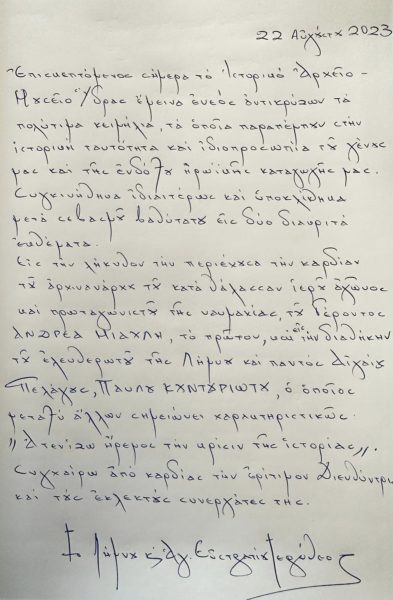 22 Αὐγούστου 2023
Ἐπισκεπτόμενος σήμερα τό Ἱστορικό Ἀρχεῖο -
Μουσεῖο Ὕδρας ἔμεινα ἐνεός ἀντικρύζων τά
πολύτιμα κειμήλια, τά ὁποῖα παραπέμπουν στήν
ἱστορική ταυτότητα καί ἰδιοπροσωπία τοῦ γένους
μας καί τῆς ἐνδόξου ἡρωϊκῆς καταγωγῆς μας.
Συγκινήθηκα ἰδιαιτέρως καί ὑποκλίθηκα
μετά σεβασμοῦ βαθυτάτου εἰς δύο διακριτά
ἐκθέματα.
Εἰς τήν λήκυθον τήν περιέχουσα τήν καρδίαν
τοῦ ἀρχιναυάρχου τοῦ κατά θάλασσαν ἱεροῦ ἀγῶνος
καί πρωταγωνιστοῦ τῆς ναυμαχίας, τοῦ Γέροντος
ΑΝΔΡΕΑ ΜΙΑΟΥΛΗ, τό πρῶτον, καί εἰς τήν διαθήκην
τοῦ ἐλευθερωτοῦ τῆς Λήμνου καί παντός Αἰγαίου
Πελάγους, ΠΑΥΛΟΥ ΚΟΥΝΤΟΥΡΙΩΤΟΥ, ὁ ὁποῖος
μεταξύ ἄλλων σημειώνει χαρακτηριστικῶς:
„Ἀτενίζω ἤρεμος τήν κρίσιν τῆς ἱστορίας„.
Συγχαίρω ἀπό καρδίας τήν ἐρίτιμον Διευθύντρι
καί τούς ἐκλεκτούς συνεργάτες της.
Ὁ Λήμνου κ Ἁγ. Εὐστρατίου Ἱερόθεος